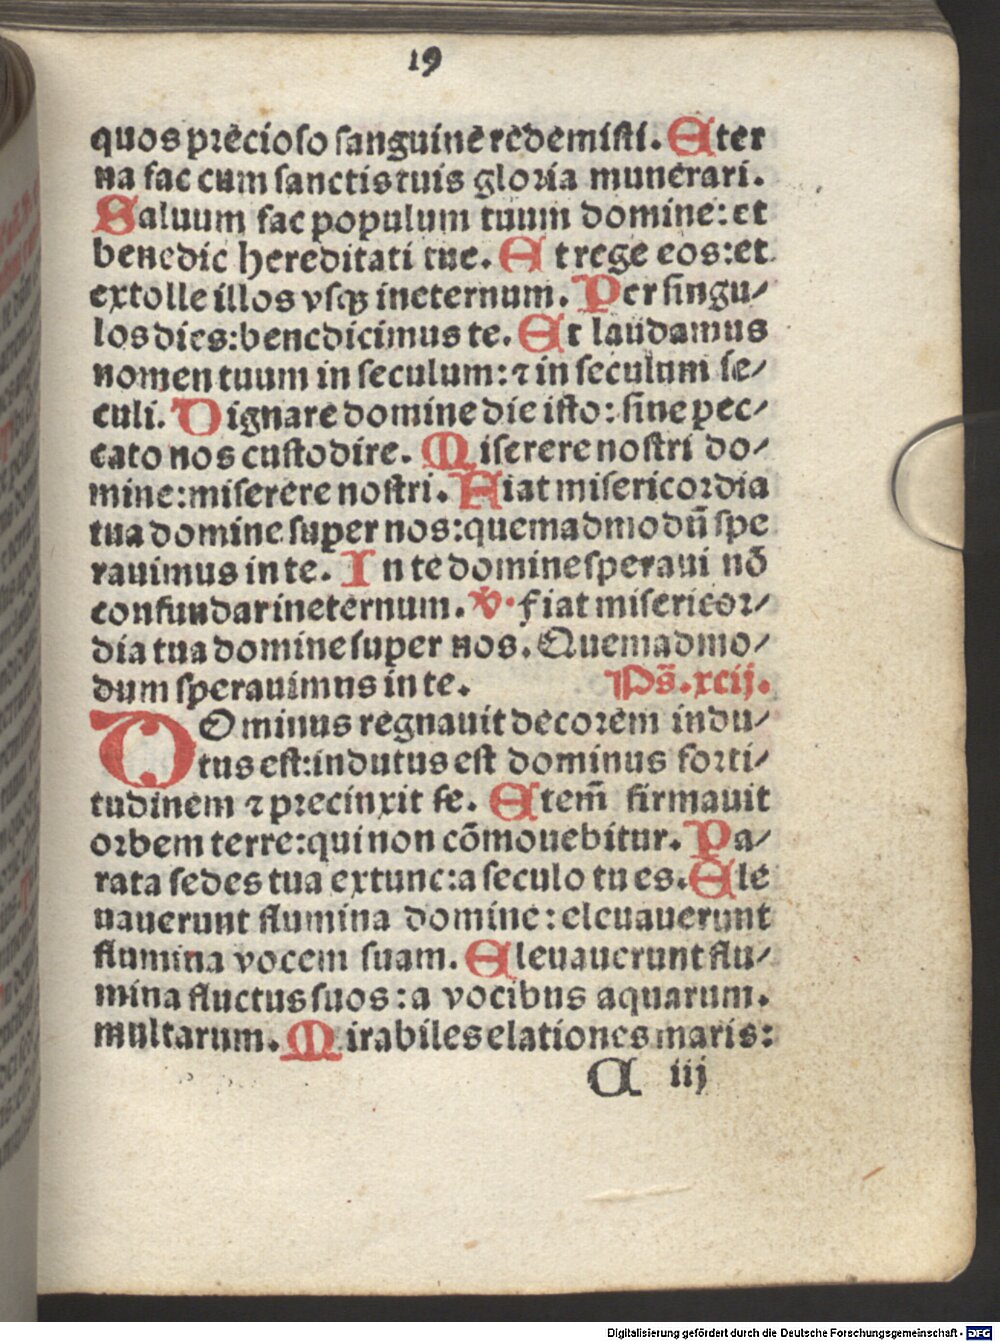 19
quos precioso sanguine redemisti. Eter
na fac cum sanctis tuis gloria munerari.
Saluum fac populum tuum domine: et
benedic hereditati tue. Et rege eos: et
extolle illos vsqꝫ ineternum. Per singu⸗
los dies: benedicimus te. Et laudamus
nomen tuum in seculum: ⁊ in seculum se⸗
culi. Dignare domine die isto: sine pec⸗
cato nos custodire. Miserere nostri do⸗
mine: miserere nostri. Fiat misericordia
tua domine super nos: quemadmodū spe
rauimus in te. In te domine speraui nō
confundar ineternum. ℣. fiat misericor⸗
dia tua domine super nos. Quemadmo⸗
dum sperauimus in te. Ps̄. xcij.
DOminus regnauit decorem indu⸗
tus est: indutus est dominus forti⸗
tudinem ⁊ precinxit se. Etem̄ firmauit
orbem terre: qui non cōmouebitur. Pa⸗
rata sedes tua extunc: a seculo tu es. Ele
uauerunt flumina domine: eleuauerunt
flumina vocem suam. Eleuauerunt flu⸗
mina fluctus suos: a vocibus aquarum.
multarum. Mirabiles elationes maris:
A iij
Digitalisierung gefördert durch die Deutsche Forschungsgemeinschaft - DFG